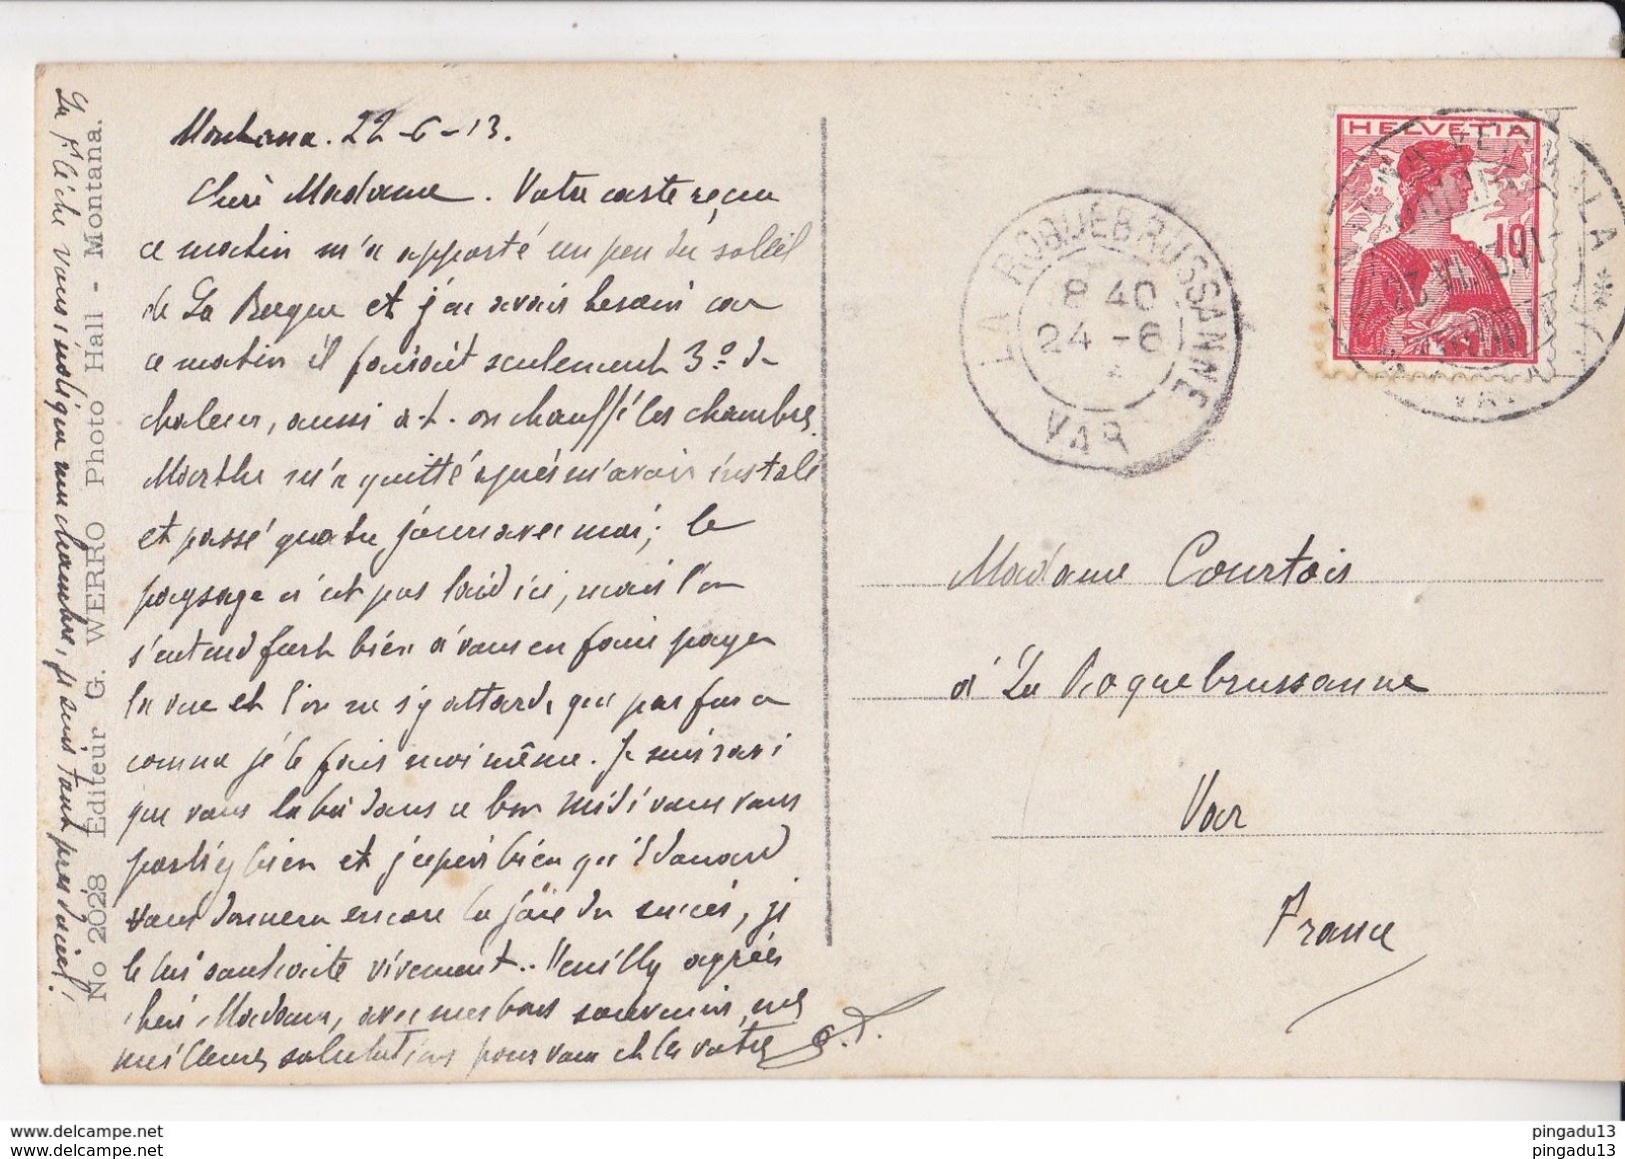 Montana. 22-6-13.
Chère Madame. Votre carte reçue
ce matin m'a apporté un peu du soleil
de La Roque et j'en avais besoin car
ce matin il faisait seulement 3° de
chaleur, aussi a-t-on chauffé les chambres.
Marthe m'a quitté après m'avoir installé
et passé quatre jours avec moi; le
paysage n'est pas laid ici, mais l'on
s'entend fort bien à vous en faire payer
la vue et l'on ne s'y attarde que par force
comme je le fais moi même. Je suis ravi
que vous là bas dans ce bon midi vous vous
portiez bien et j'espère bien qu'Edouard
vous donnera encore la joie du succès, je
le lui souhaite vivement. Veuillez agréer
chère Madame, avec mes bons souvenirs, mes
meilleures salutations pour vous et les vôtres
La flèche vous indique ma chambre, je suis tout près du ciel!
No 2028 Editeur G. WERRO Photo Hall - Montana.
HELVETIA
10
LA ROQUEBRUSSANNE
8 40
24 - 6
VAR
Madame Courtois
à La Roquebrussanne
Var
France
www.delcampe.net
www.delcampe.net
pingadu13
pingadu13